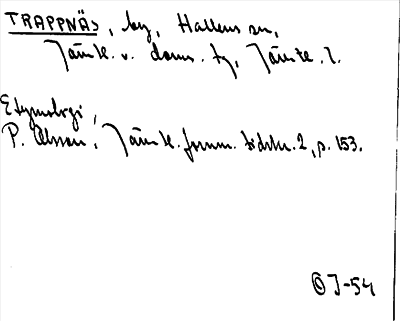 TRAPPNÄS, by, Hallens sn,
Jämtl. v. doms. tg, Jämtl. l.
Etymologi,
P. Olsson, Jämtl. fornm. tidskr. 2, p. 153.
ÖJ-54